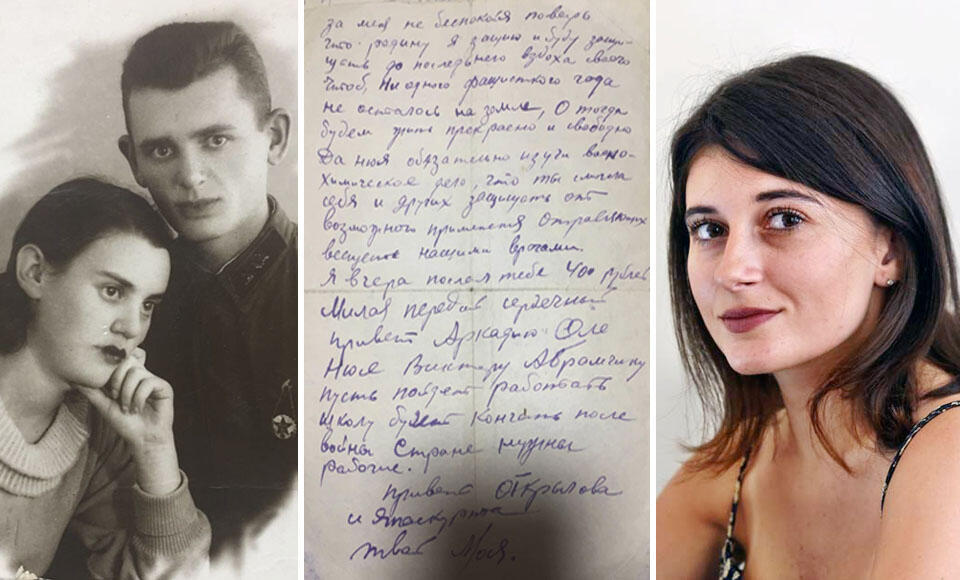 за меня не беспокойся поверь
что родину я защищ и буду защи-
щать до последнего вздоха своего
чтоб, Ни одного фашисткого гада
не осталось на земле, О тогда
будем жить прекрасно и свободно
Да Нюся обязательно изучи военно-
химическое дело, что ты смогла
себя и других защищать от
возможного применения отравляющих
веществ нашими врагами.
Я вчера послал тебе 400 рублей
Милая передай сердечный
привет Аркадию Оле
Нюсе Виктору Абрамчику
пусть пойдет работать
школу будет кончать после
войны Стране нужны
рабочие.
привет
и
твой Мося.